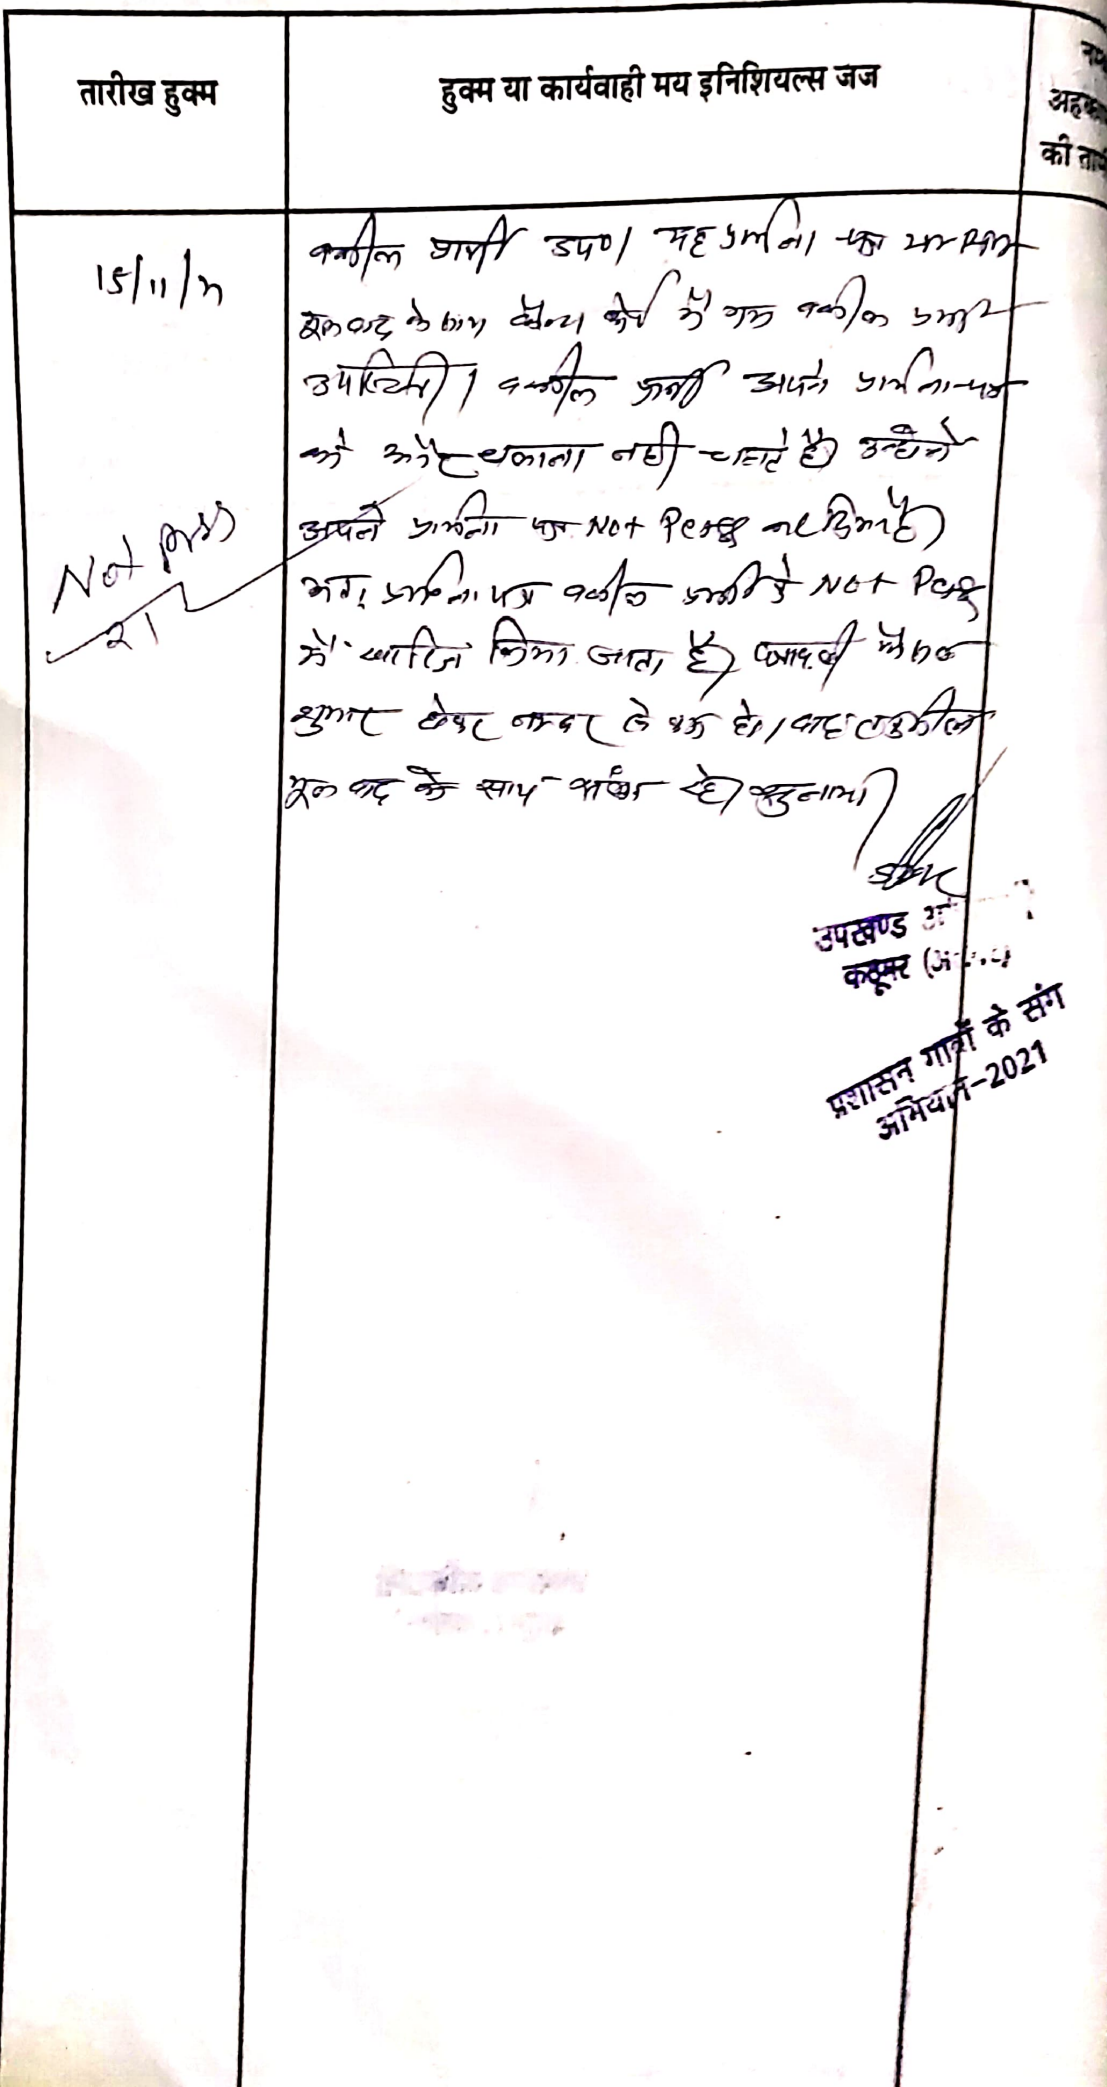 तारीख हुक्म
हुक्म या कार्यवाही मय इनिशियल्स जज
अहक
की ता
15/11/21
वकील प्रार्थी उप०। यह प्रार्थना पत्र
मूल वाद के साथ कैम्प कोर्ट में वकील प्रार्थी
उपस्थित। वकील प्रार्थी अपने प्रार्थना-पत्र
को आगे चलाना नहीं चाहते है। उन्होने
अपने प्रार्थना पत्र Not Press कर दिया है।
अतः प्रार्थना पत्र वकील प्रार्थी के Not Press
में खारिज किया जाता है। पत्रावली फैसल
शुमार होकर नम्बर से कम हो। बाद तकमील
मूल वाद के साथ शामिल रहे। सुनाया।
Not press
21
उपखण्ड
कठूमर
प्रशासन गावों के संग
अभियान-2021